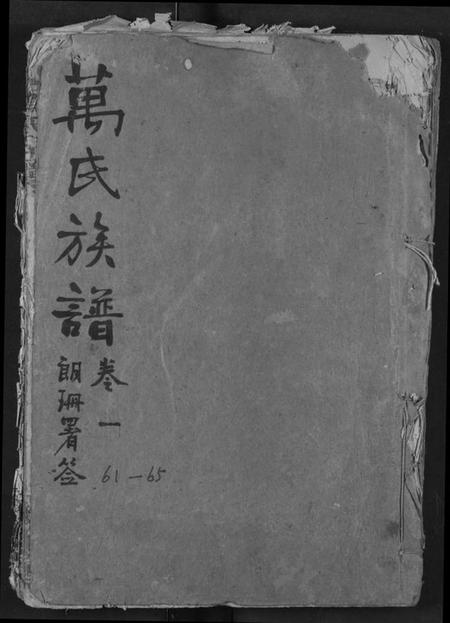 萬氏族譜
卷一
朗珊署签
61—65